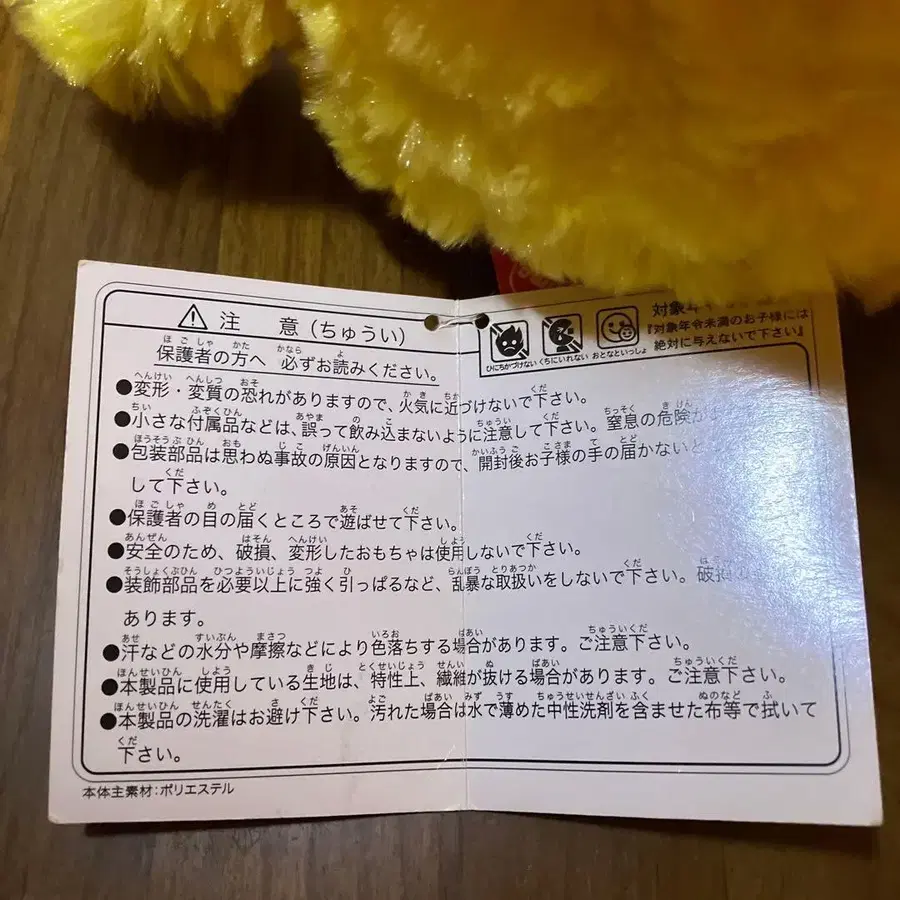 注 意(ちゅうい)
保護者の方へ 必ずお読みください。
ひにちかづけない くちにいれない おとなといっしょ
対象年
『対象年令未満のお子様には
絶対に与えないで下さい』
●変形・変質の恐れがありますので、火気に近づけないで下さい。
●小さな付属品などは、誤って飲み込まないように注意して下さい。窒息の危険が
●包装部品は思わぬ事故の原因となりますので、開封後お子様の手の届かない
して下さい。
●保護者の目の届くところで遊ばせて下さい。
●安全のため、破損、変形したおもちゃは使用しないで下さい。
●装飾部品を必要以上に強く引っぱるなど、乱暴な取扱いをしないで下さい。破損
あります。
●汗などの水分や摩擦などにより色落ちする場合があります。ご注意下さい。
●本製品に使用している生地は、特性上、繊維が抜ける場合があります。ご注意下さい。
●本製品の洗濯はお避け下さい。汚れた場合は水で薄めた中性洗剤を含ませた布等で拭いて
下さい。
本体主素材:ポリエステル